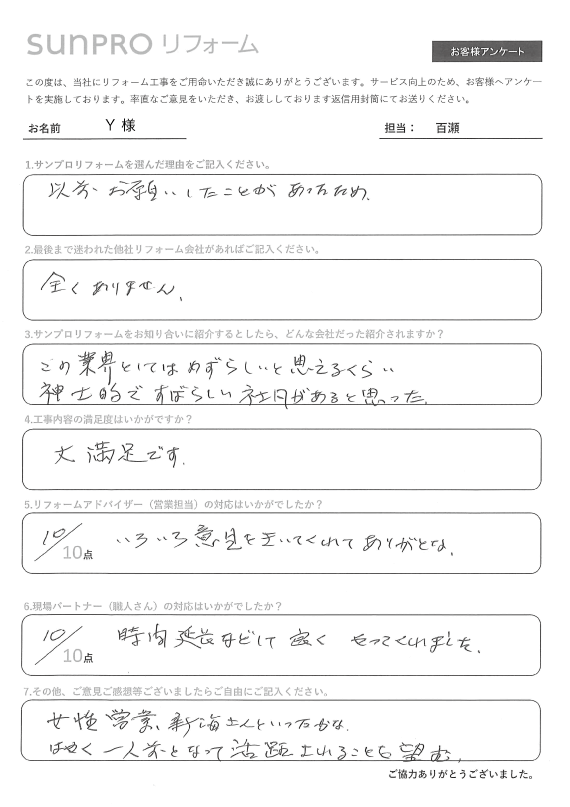 SUNPRO リフォーム
お客様アンケート
この度は、当社にリフォーム工事をご用命いただき誠にありがとうございます。サービス向上のため、お客様へアンケー
トを実施しております。率直なご意見をいただき、お渡ししております返信用封筒にてお送りください。
お名前 Y 様 担当： 百瀬
1.サンプロリフォームを選んだ理由をご記入ください。
以前、お願いしたことがあったため、
2.最後まで迷われた他社リフォーム会社があればご記入ください。
全くありません。
3.サンプロリフォームをお知り合いに紹介するとしたら、どんな会社だった紹介されますか？
この業界としてはめずらしいと思えるくらい
紳士的ですばらしい社員があると思った。
4.工事内容の満足度はいかがですか？
大満足です。
5.リフォームアドバイザー（営業担当）の対応はいかがでしたか？
10/10点 いろいろ意見をきいてくれてありがとな。
6.現場パートナー（職人さん）の対応はいかがでしたか？
10/10点 時間延長などして良くやってくれました。
7.その他、ご意見ご感想等ございましたらご自由にご記入ください。
女性営業、新海さんといったかな、
はやく一人前となって活躍されることを望む。
ご協力ありがとうございました。